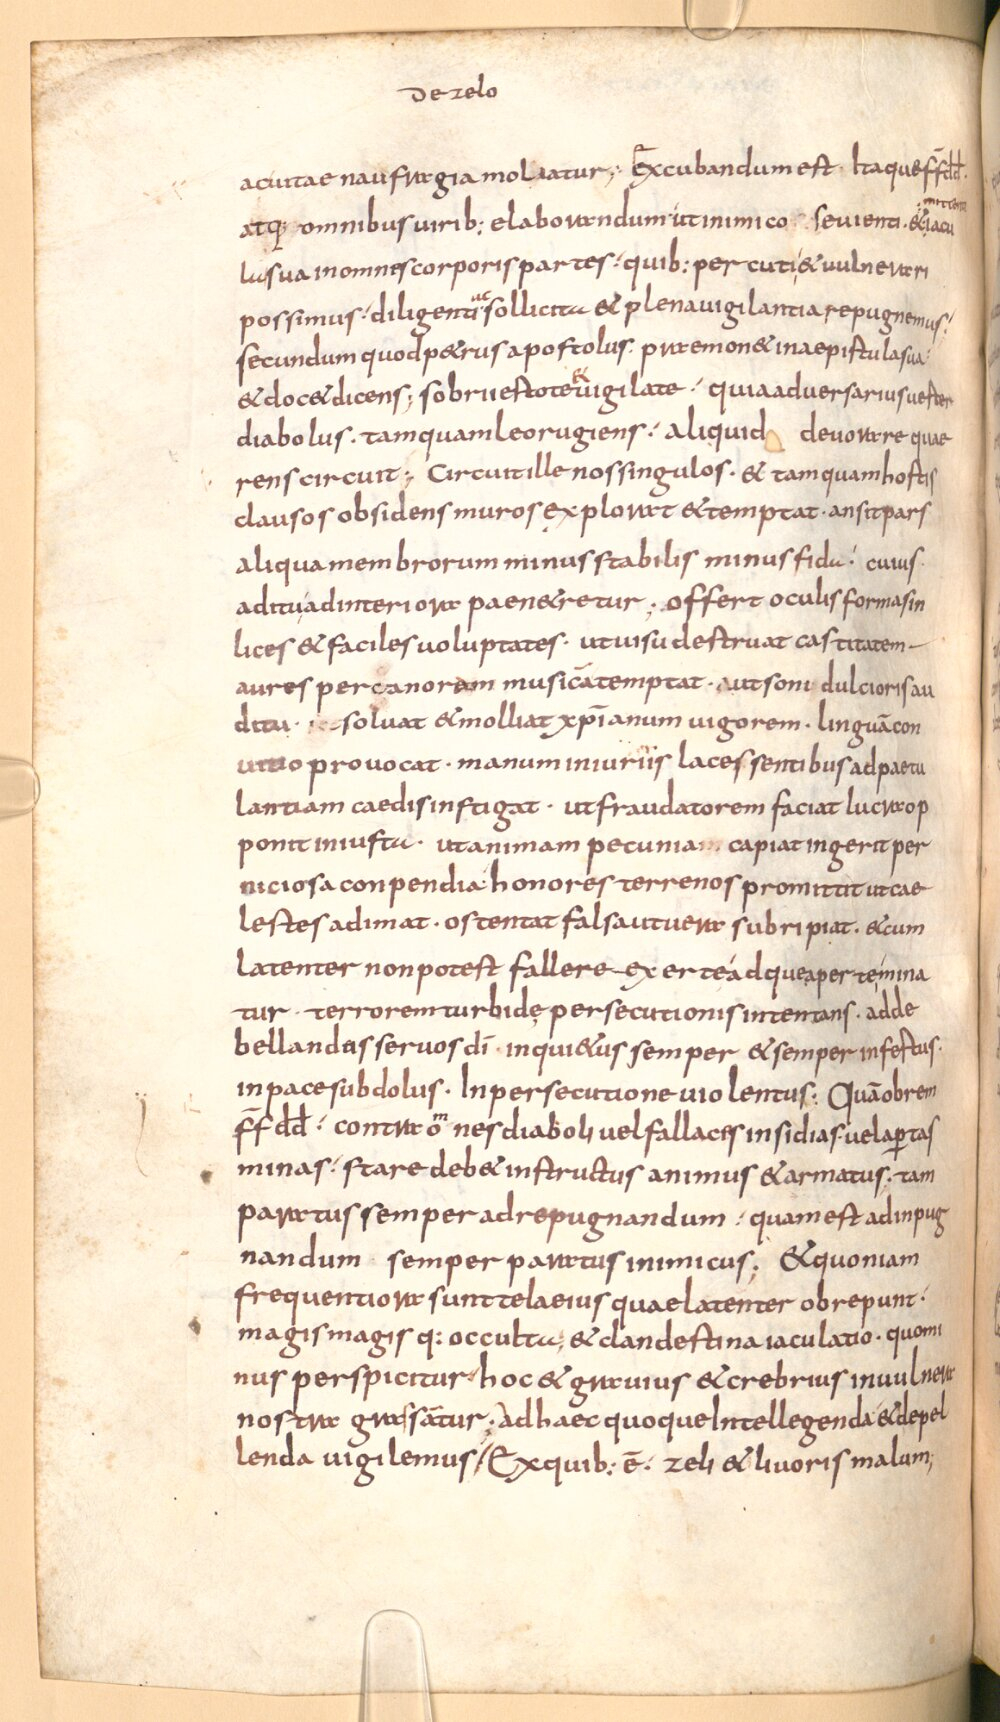 De zelo
acuitae naufragia moliatur; Excubandum est Itaque f̅f̅ dd.
atq; omnibus uirib; elaborandum ut inimico seuienti. & iacu
mittenti
la sua in omnes corporis partes. quib; percuti & uulnerari
possimus. diligenti ac sollicita & plena uigilantia repugnemus.
secundum quod p&rus apostolus. praemon& in aepistula sua.
& doc& dicens; sobrii estote & uigilate. quia aduersarius uester
diabolus. tamquam leo rugiens. aliquid deuorare quae
rens circuit; Circuit ille nos singulos. & tamquam hostis
clausos obsidens muros explorat & temptat. an sit pars
aliqua membrorum minus stabilis minus fida. cuius
aditu ad interiora paen&retur; offert oculis formas in
lices & faciles uoluptates. ut uisu destruat castitatem
aures per canoram musicā temptat. ut soni dulcioris au
ditu. soluat & molliat xp̄ianum uigorem. linguā con
uitio prouocat. manum iniuriis lacessentibus ad paetu
lantiam caedis instigat. ut fraudatorem faciat lucra op
ponit iniusta. ut animam pecunia capiat ingerit per
niciosa conpendia honores terrenos promittit ut cae
lestes adimat. ostentat falsa ut uera subripiat. & cum
latenter non potest fallere exerte adque aperte mina
tur terrorem turbidę persecutionis intentans. adde
bellandus seruos dī inqui&us semper & semper infestus.
in pace subdolus. In persecutione uiolentus; Quāobrem
f̅f̅ dd. contra omnes diaboli uel fallaces insidias. uel aptas
minas. stare deb& instructus animus & armatus. tam
paratus semper ad repugnandum. quam est ad inpug
nandum semper paratus inimicus; & quoniam
frequentiora sunt tela eius quae latenter obrepunt.
magis magis q; occulta & clandestina iaculatio. quomi
nus perspicitur hoc & grauius & crebrius in uulnera
nostra grassatur; Ad haec quoque Intellegenda & depel
lenda uigilemus; Ex quib; ē. zeli & liuoris malum;